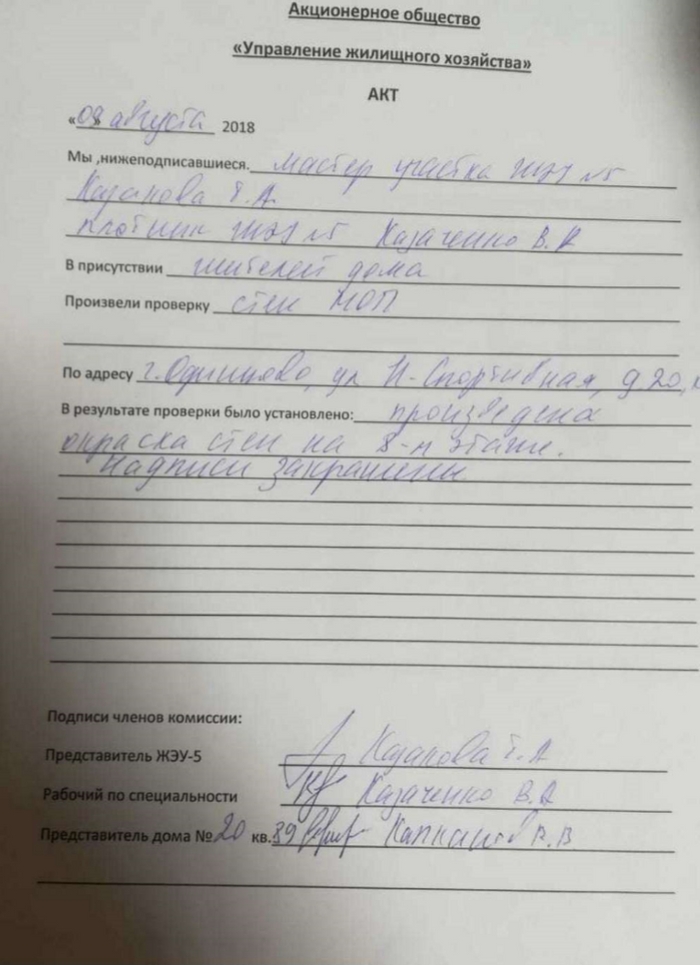 Акционерное общество
«Управление жилищного хозяйства»
АКТ
«09» августа 2018
Мы ,нижеподписавшиеся. мастер участка ЖЭУ №5
Казакова Т.А.
плотник ЖЭУ №5 Казаченко В.А
В присутствии жителей дома
Произвели проверку стен МОП
По адресу г.Одинцово, ул Н-Спортивная, д.20,
В результате проверки было установлено: произведена
окраска стен на 8-м этаже.
Надписи закрашены
Подписи членов комиссии:
Представитель ЖЭУ-5 Казакова Т.А
Рабочий по специальности Казаченко В.А
Представитель дома № 20 кв. 39